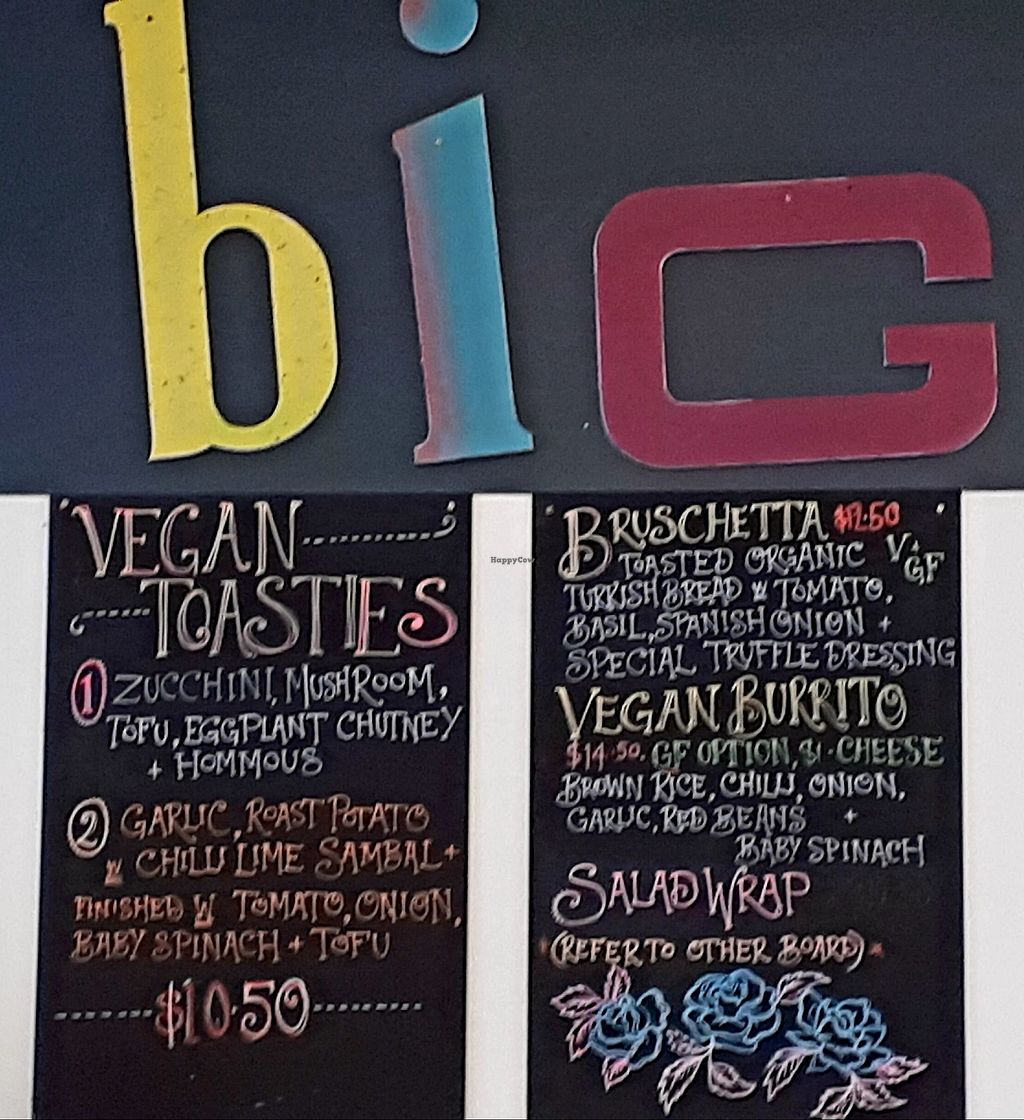 big
VEGAN
TOASTIES
1 ZUCCHINI, MUSHROOM,
TOFU, EGGPLANT CHUTNEY
+ HOMMOUS
2 GARLIC, ROAST POTATO
W CHILLI LIME SAMBAL +
FINISHED W TOMATO, ONION,
BABY SPINACH + TOFU
$10.50
HappyCow
BRUSCHETTA
TOASTED ORGANIC V+
GF
TURKISH BREAD W TOMATO,
BASIL, SPANISH ONION +
SPECIAL TRUFFLE DRESSING
VEGAN BURRITO
$14.50. GF OPTION, CHEESE
BROWN RICE, CHILLI, ONION,
GARLIC, RED BEANS +
BABY SPINACH
SALAD WRAP
(REFER TO OTHER BOARD)